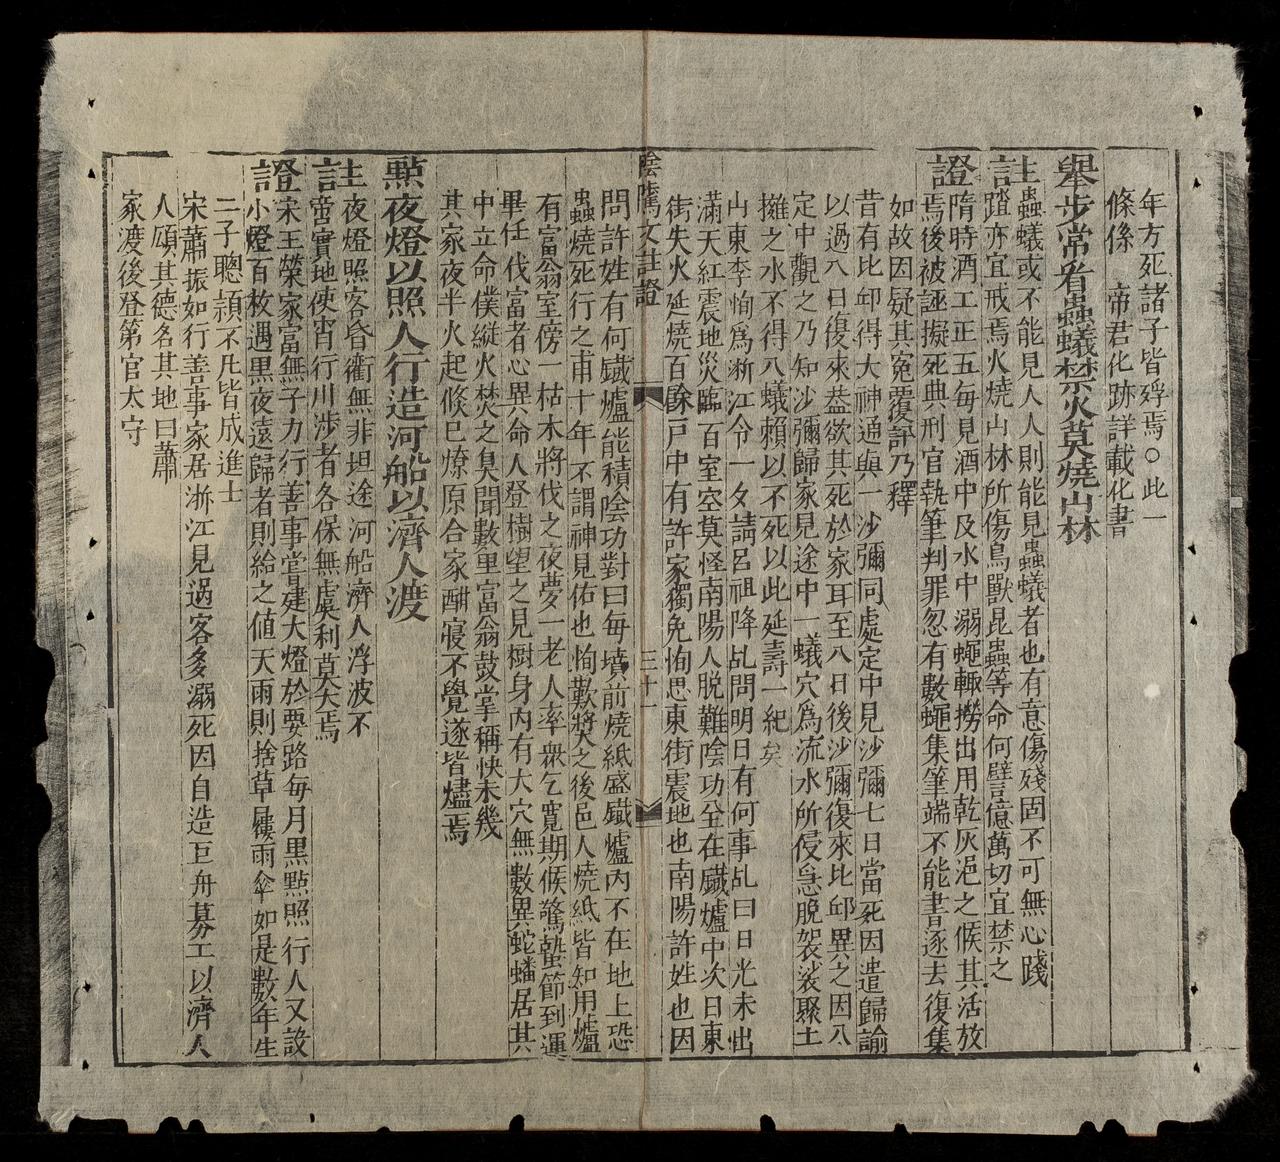 年方死諸子皆殍焉○此一
條係　帝君化跡詳載化書
舉步常看蟲蟻禁火莫燒山林
註蟲蟻或不能見人人則能見蟲蟻者也有意傷殘固不可無心踐
蹅亦宜戒焉火燒山林所傷鳥獸昆蟲等命何啻億萬切宜禁之
證隋時酒工正五每見酒中及水中溺蠅輒撈出用乾灰浥之候其活放
焉後被誣擬死典刑官執筆判罪忽有數蠅集筆端不能書逐去復集
如故因疑其冤覆評乃釋
昔有比邱得大神通與一沙彌同處定中見沙彌七日當死因遣歸諭
以過八日復來葢欲其死於家耳至八日後沙彌復來比邱異之因八
定中觀之乃知沙彌歸家見途中一蟻穴爲流水所侵急脫袈裟聚土
擁之水不得入蟻賴以不死以此延壽一紀矣
山東李恂爲淅江令一女請呂祖降乩問明日有何事乩曰日光未出
滿天紅震地災臨百室空莫怪南陽人脫難陰功全在鐡爐中次日東
街失火延燒百餘戸中有許家獨免恂思東街震地也南陽許姓也因
陰隲文註證　三十一
問許姓有何鐡爐能積陰功對曰每墳前燒紙盛鐡爐內不在地上恐
蟲燒死行之甫十年不謂神見佑也恂歎獎之後邑人燒紙皆知用爐
有富翁室傍一枯木將伐之夜夢一老人率衆乞寬期候驚蟄節到運
畢任伐富者心異命人登樹望之見樹身內有大穴無數異蛇蟠居其
中立命僕縱火焚之臭聞數里富翁鼓掌稱快未幾
其家夜半火起倐已燎原合家酣寢不覺遂皆燼焉
㸃夜燈以照人行造河船以濟人渡
註夜燈照客昏衢無非坦途河船濟人浮波不
啻實地使宵行川渉者各保無虞利莫大焉
證宋王榮家富無子力行善事嘗建大燈於要路每月黑㸃照行人又設
小燈百枚遇黑夜遠歸者則給之値天雨則捨草屨雨傘如是數年生
二子聰頴不凡皆成進士
宋蕭振如行善事家居淅江見過客多溺死因自造巨舟募工以濟人
人頌其德名其地曰蕭
家渡後登第官太守